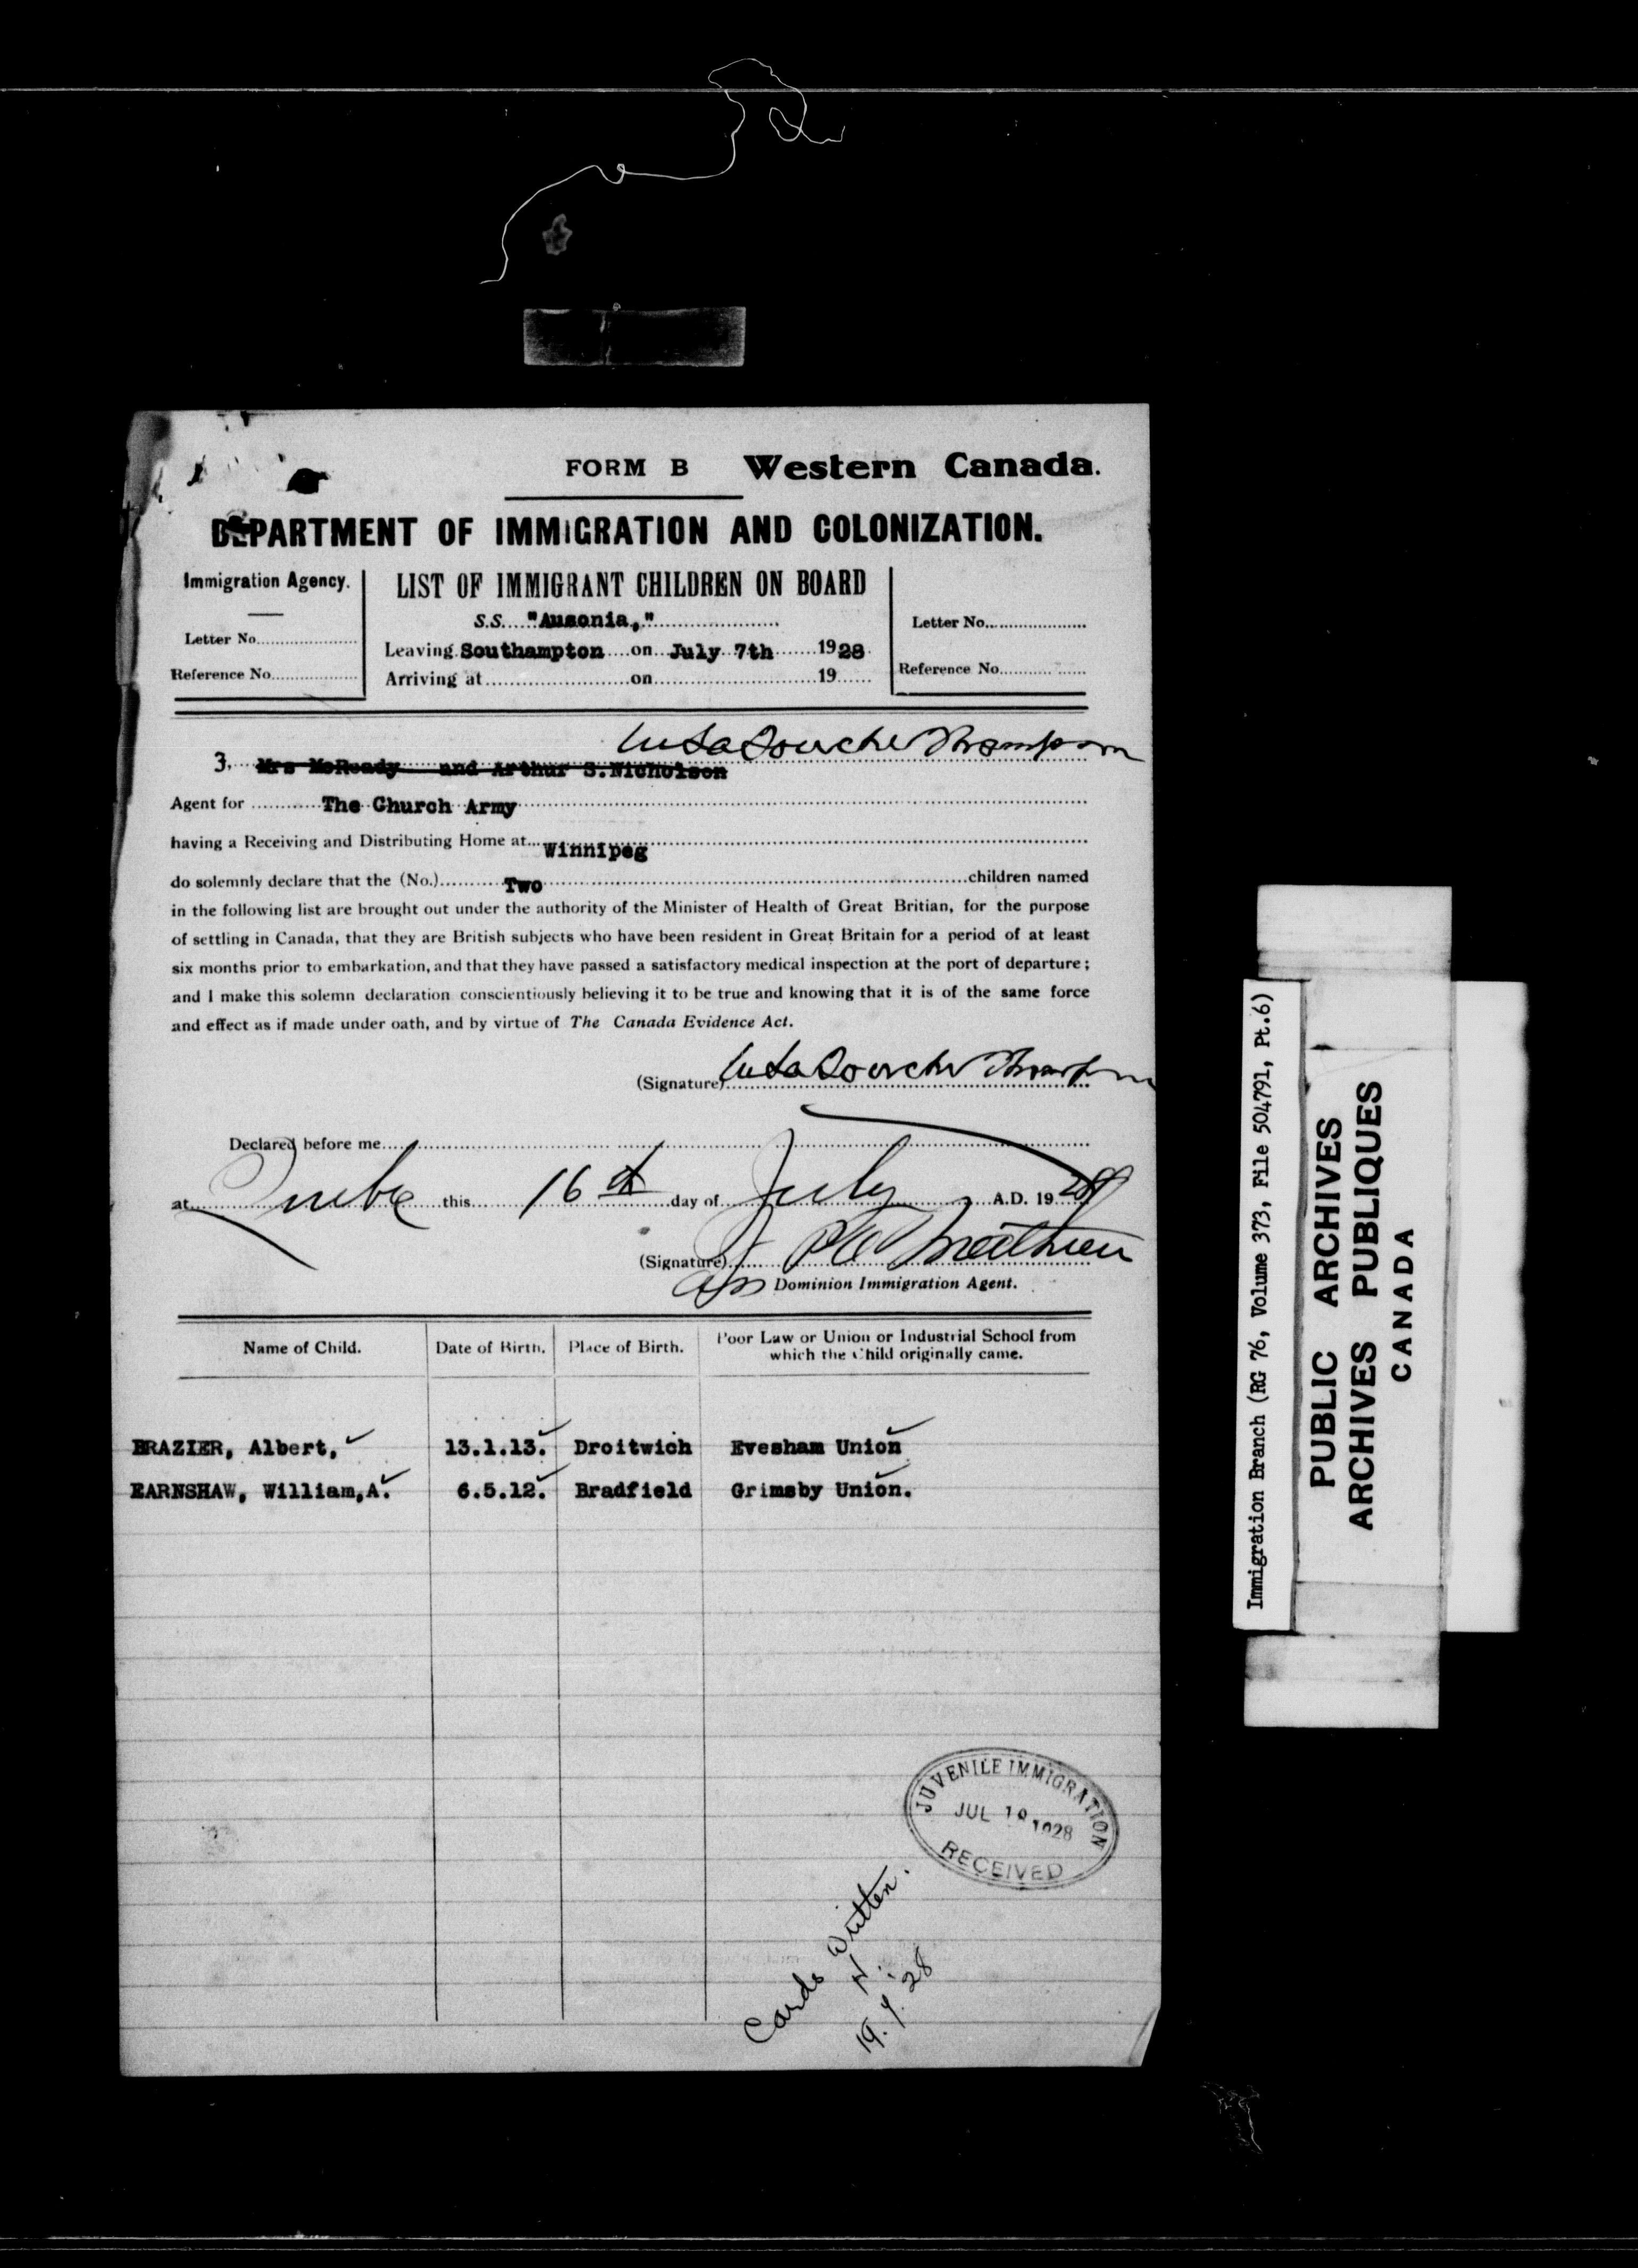 FORM B Western Canada.
DEPARTMENT OF IMMIGRATION AND COLONIZATION.
Immigration Agency.
Letter No.
Reference No.
LIST OF IMMIGRANT CHILDREN ON BOARD
S.S. "Ausonia,"
Leaving Southampton on July 7th 1928
Arriving at on 19
Letter No.
Reference No.
Thompson
Mrs McReady and Arthur S.Nicholson
Agent for The Church Army
having a Receiving and Distributing Home at Winnipeg
do solemnly declare that the (No.) Two children named
in the following list are brought out under the authority of the Minister of Health of Great Britian, for the purpose
of settling in Canada, that they are British subjects who have been resident in Great Britain for a period of at least
six months prior to embarkation, and that they have passed a satisfactory medical inspection at the port of departure;
and I make this solemn declaration conscientiously believing it to be true and knowing that it is of the same force
and effect as if made under oath, and by virtue of The Canada Evidence Act.
(Signature) Thompson
Declared before me
at Quebec this 16th day of July A.D. 1928
(Signature) Mathieu
Dominion Immigration Agent.
Name of Child. Date of Birth. Place of Birth. Poor Law or Union or Industrial School from which the Child originally came.
BRAZIER, Albert, 13.1.13. Droitwich Evesham Union
EARNSHAW, William,A. 6.5.12. Bradfield Grimsby Union.
JUVENILE IMMIGRATION
JUL 19 1928
RECEIVED
Cards Written.
19.7.28
Immigration Branch (RG 76, Volume 373, File 504791, Pt.6)
PUBLIC ARCHIVES
ARCHIVES PUBLIQUES
CANADA